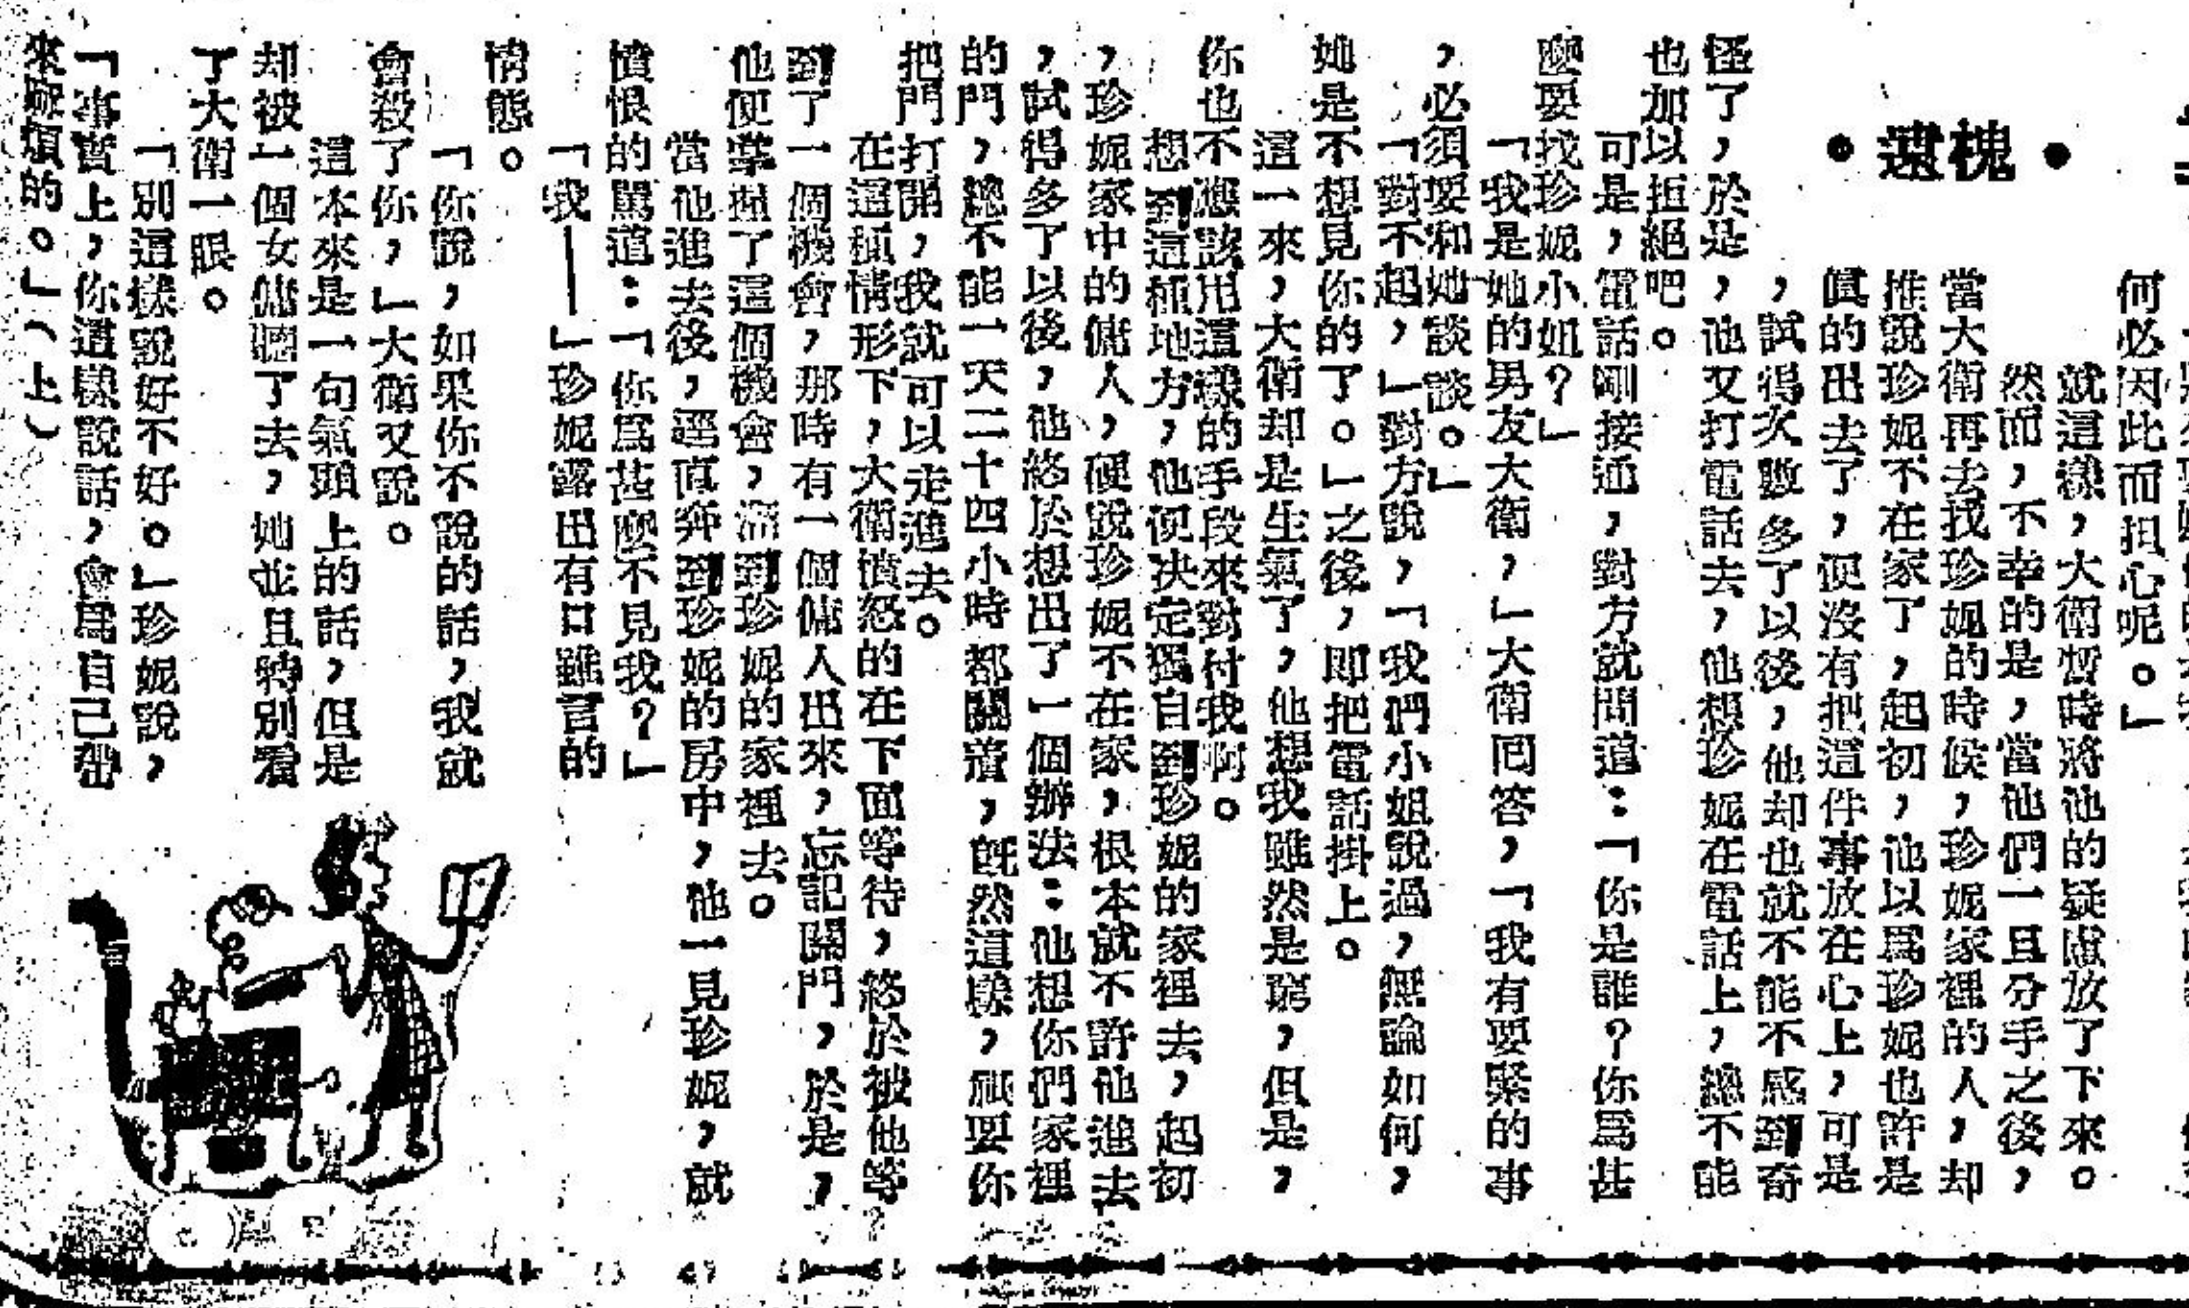 何必因此而担心呢。」
就這樣，大衛暫時將他的疑慮放了下來。
然而，不幸的是，當他們一旦分手之後，
當大衛再去找珍妮的時候，珍妮家裡的人，却
推說珍妮不在家了，起初，他以爲珍妮也許是
眞的出去了，便沒有把這件事放在心上，可是
，試得次數多了以後，他却也就不能不感到奇
•槐遺•
怪了，於是，他又打電話去，他想珍妮在電話上，總不能
也加以拒絕吧。
可是，電話剛接通，對方就問道：「你是誰？你爲甚
麼要找珍妮小姐？」
「我是她的男友大衛，」大衛囘答，「我有要緊的事
，必須要和她談談。」
「對不起，」對方說，「我們小姐說過，無論如何，
她是不想見你的了。」之後，即把電話掛上。
這一來，大衛却是生氣了，他想我雖然是窮，但是，
你也不應該用這樣的手段來對付我啊。
想到這種地方，他便決定獨自到珍妮的家裡去，起初
，珍妮家中的傭人，硬說珍妮不在家，根本就不許他進去
，試得多了以後，他終於想出了一個辦法：他想你們家裡
的門，總不能一天二十四小時都關着，既然這樣，祇要你
把門打開，我就可以走進去。
在這種情形下，大衛憤怒的在下面等待，終於被他等
到了一個機會，那時有一個傭人出來，忘記關門，於是，
他便掌握了這個機會，溜到珍妮的家裡去。
當他進去後，逕直奔到珍妮的房中，他一見珍妮，就
憤恨的罵道：「你爲甚麼不見我？」
「我——」珍妮露出有口難言的
情態。
「你說，如果你不說的話，我就
會殺了你，」大衛又說。
這本來是一句氣頭上的話，但是
却被一個女傭聽了去，她並且特別看
了大衛一眼。
「別這樣說好不好。」珍妮說，
「事實上，你這樣說話，會爲自己帶
來麻煩的。」（上）